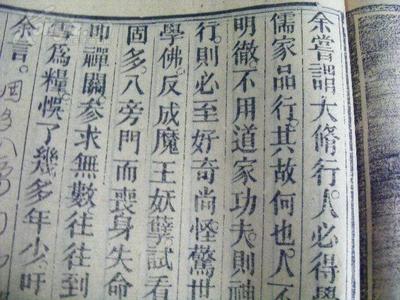 余嘗謂大修行人必得學
儒家品行其故何也人
明徹不用道家功夫則神
行則必至好奇尚怪驚世
學佛反成魔王妖孽試看
固多入旁門而喪身失命
即禪關參求無數往往到
為糧悞了幾多年少吁
余言